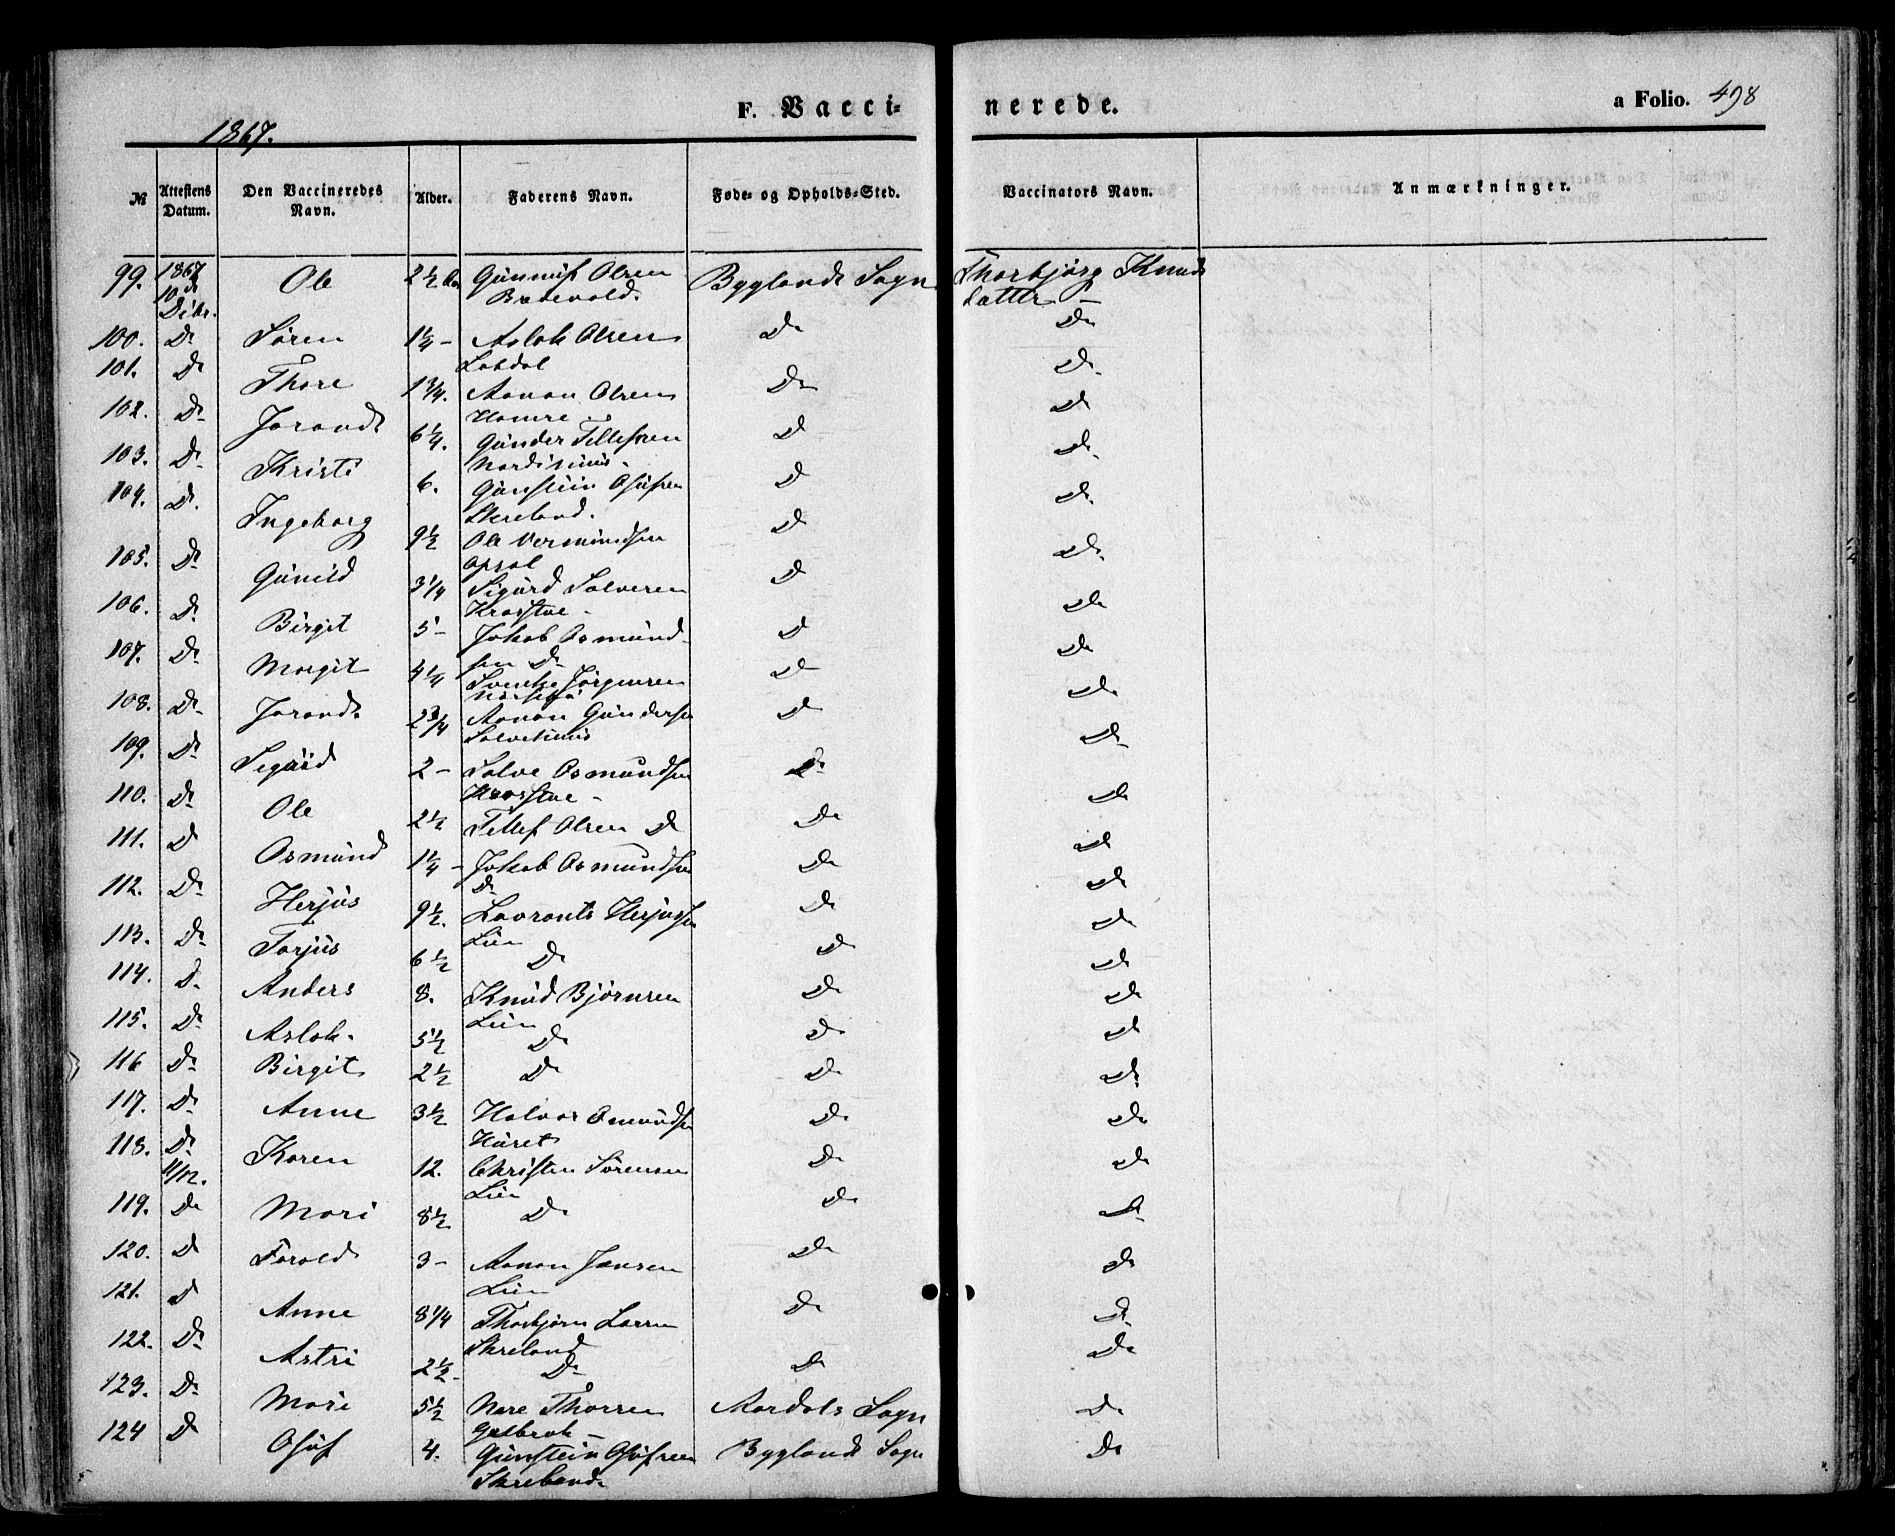 F. Vacci- nerede. a Folio. 498
1867.
№ Attestens Datum. Den Vaccineredes Navn. Alder. Faderens Navn. Føde- og Opholds-Sted. Vaccinators Navn. Anmærkninger.
99. 1867 10de Dcbr. Ole 2½ Aar Gunnuf Olsen Byglands Sogn Thorbjørg Knuds
datter
100. Do Søren 1¼ - Aslak Olsen Do Do
Lobdal
101. Do Thore 1¾. Aanon Olsen Do Do
Homre
102. Do Jorand 6¼. Gunder Tellefsen Do Do
103. Do Kristi 6. Gunstein Olufsen Do Do
Skreland.
104. Do Ingeborg 9½ Ole Vermundsen Do Do
Opsal
105. Do Gunild 3¼ Sigurd Salvesen Do Do
106. Do Birgit 5 - Jokob Osmund- Do Do
sen Do
107. Do Margit 4¼ Jørgensen Do Do
108. Do Jorand 2¾ Aanon Gundersen Do Do
109. Do Sigurd 2 - Salve Osmundsen Do Do
110. Do Ole 2½ Tellef Olsen Do Do Do
111. Do Osmund 1¼ - Jokob Osmundsen Do Do
Do
112. Do Herjus 9½. Lavrants Herjussen Do Do
Lien
113. Do Torjus 6½ Do Do Do
114. Do Anders 8. Knud Bjørnsen Do Do
Lien
115. Do Aslak. 5½ Do Do Do
116 Do Birgit 2½ Do Do Do
117. Do Anne 3½ Halvor Omundsen Do Do
Huset
118. Do 11/12. Karen 12. Christen Sørensen Do Do
Lien
119. Do Mari 8½ Do Do Do
120. Do Torald 3 - Aanon Jensen Do Do
Lien
121. Do Anne 8¼ Thorbjørn Larsen Do Do
Skreland
122. Do Astri 2½ Do Do Do
123. Do Mari 5½ Nere Thorsen Aardals Sogn Do
124 Do Oluf 4. Gunstein Olufsen Byglands Sogn Do
Skreland